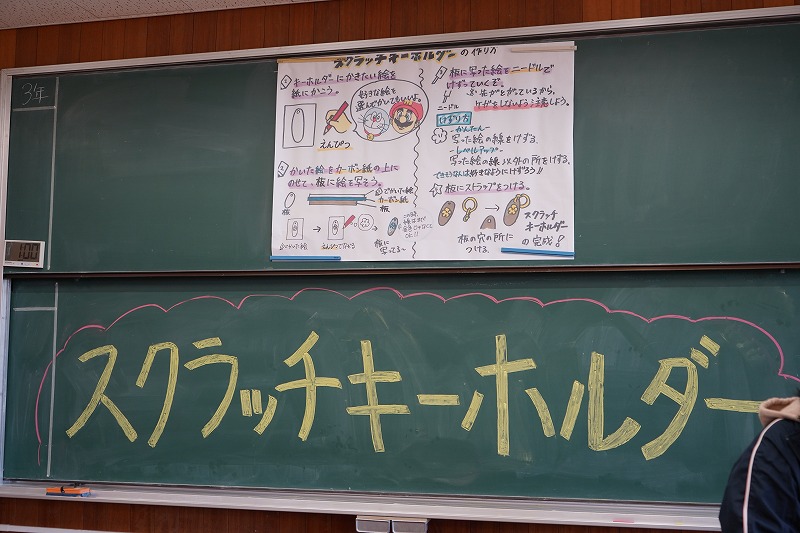 3年
スクラッチキーホルダーの作り方
① キーホルダーにかきたい絵を
紙にかこう。
好きな絵を
選んでかいてもいいよ。
えんぴつ
② かいた絵をカーボン紙の上に
のせて、板に絵を写そう。
板
①でかいた絵
カーボン紙
板
①でかいた絵
えんぴつでなぞる
板に
写ってる〜
③ 板に写った絵をニードルで
けずっていくぞ。
ニードル
先がとがっているから、
ケガをしないよう注意しよう。
けずり方
-かんたん-
写った絵の線をけずる。
-レベルアップ-
写った絵の線以外の所をけずる。
できそうな人は好きなようにけずろう!!
板にストラップをつける。
板の穴の所に
つける。
スクラッチ
キーホルダー
の完成!
100
スクラッチキーホルダー